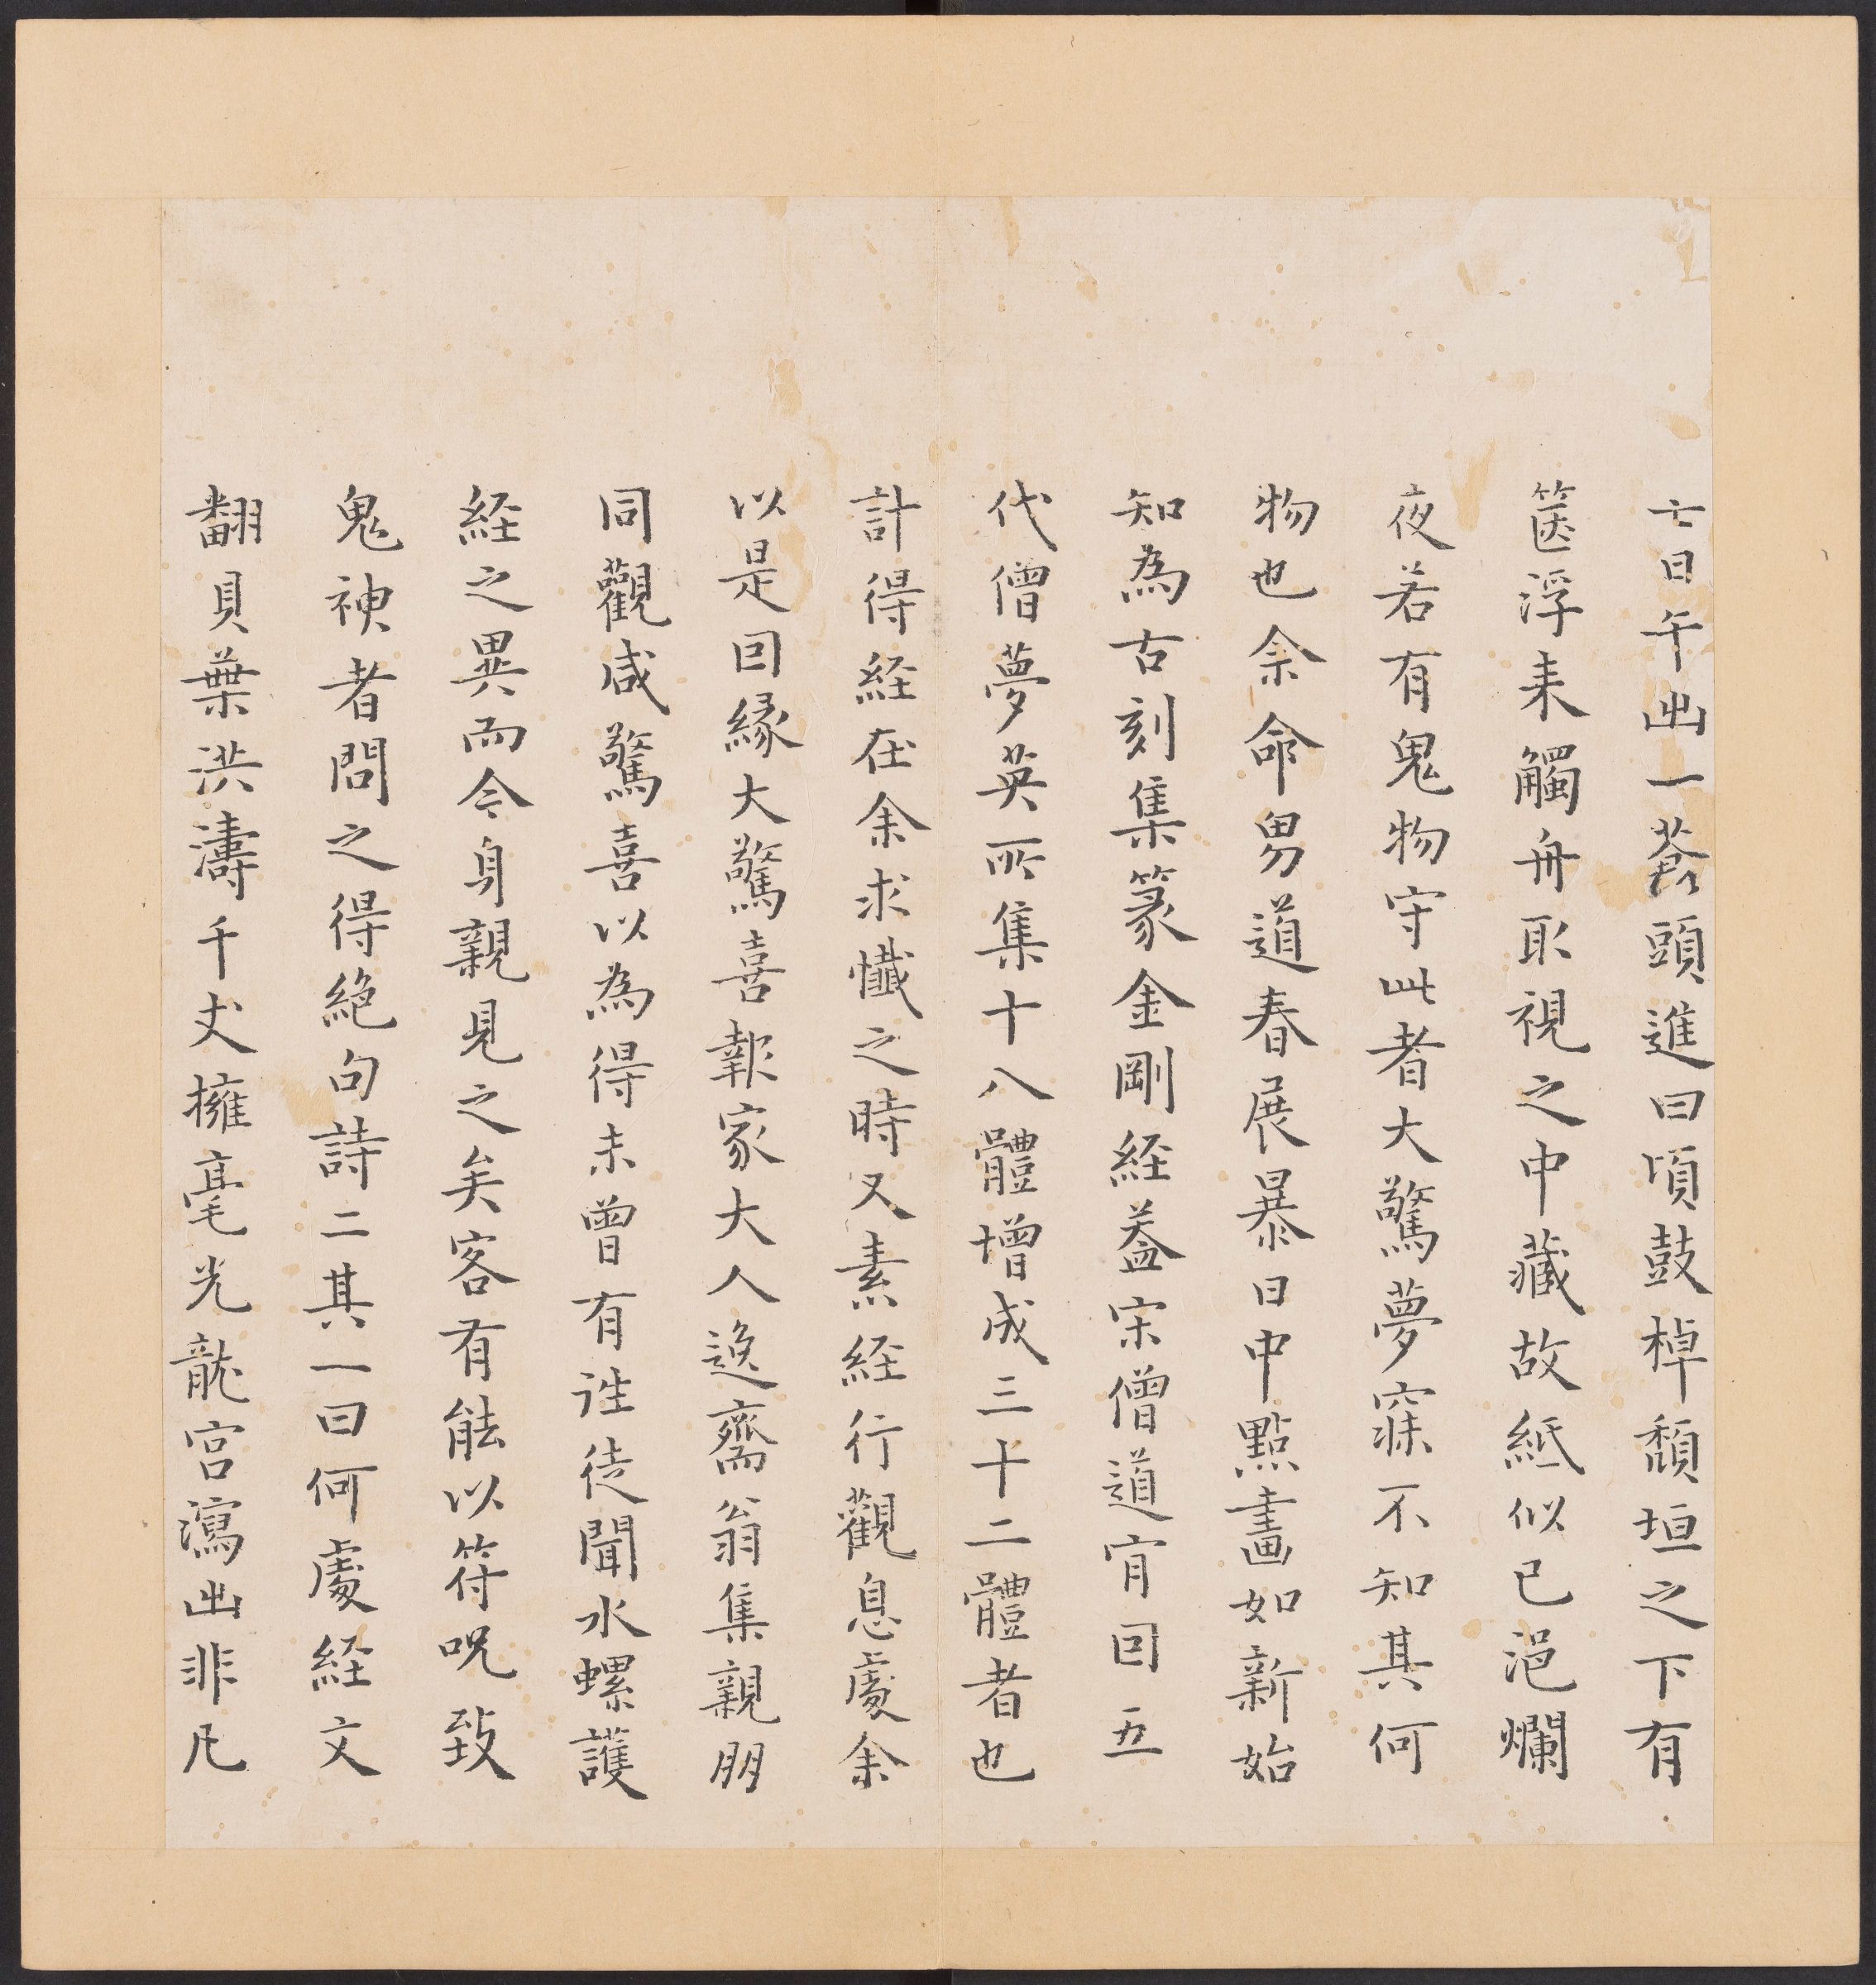 七日午出一蒼頭進曰頃鼓棹頹垣之下有
篋浮来觸舟取視之中藏故紙似已浥爛
夜若有鬼物守此者大驚夢寐不知其何
物也余命男道春展暴日中點畫如新始
知為古刻集篆金剛経葢宋僧道肎因五
代僧夢英所集十八體增成三十二體者也
計得経在余求懺之時又素経行觀息處余
以是因緣大驚喜報家大人逸齋翁集親朋
同觀咸驚喜以為得未曾有詫徒聞水螺護
経之異而今身親見之矣客有能以符呪致
鬼神者問之得絶句詩二其一曰何處経文
翻貝葉洪濤千丈擁毫光龍宮瀉出非凡